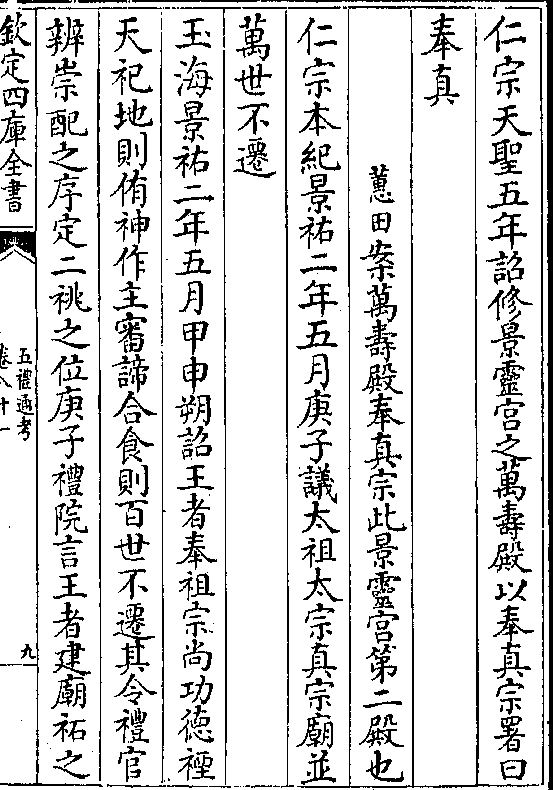 仁宗天聖五年詔修景靈宮之萬壽殿以奉真宗署曰
奉真
蕙田案萬壽殿奉真宗此景靈宮第二殿也
仁宗本紀景祐二年五月庚子議太祖太宗真宗廟並
萬世不遷
玉海景祐二年五月甲申朔詔王者奉祖宗尚功德禋
天祀地則侑神作主審諦合食則百世不遷其令禮官
辨崇配之序定二祧之位庚子禮院言王者建廟祏之
欽定四庫全書
五禮通考
卷八十一
九